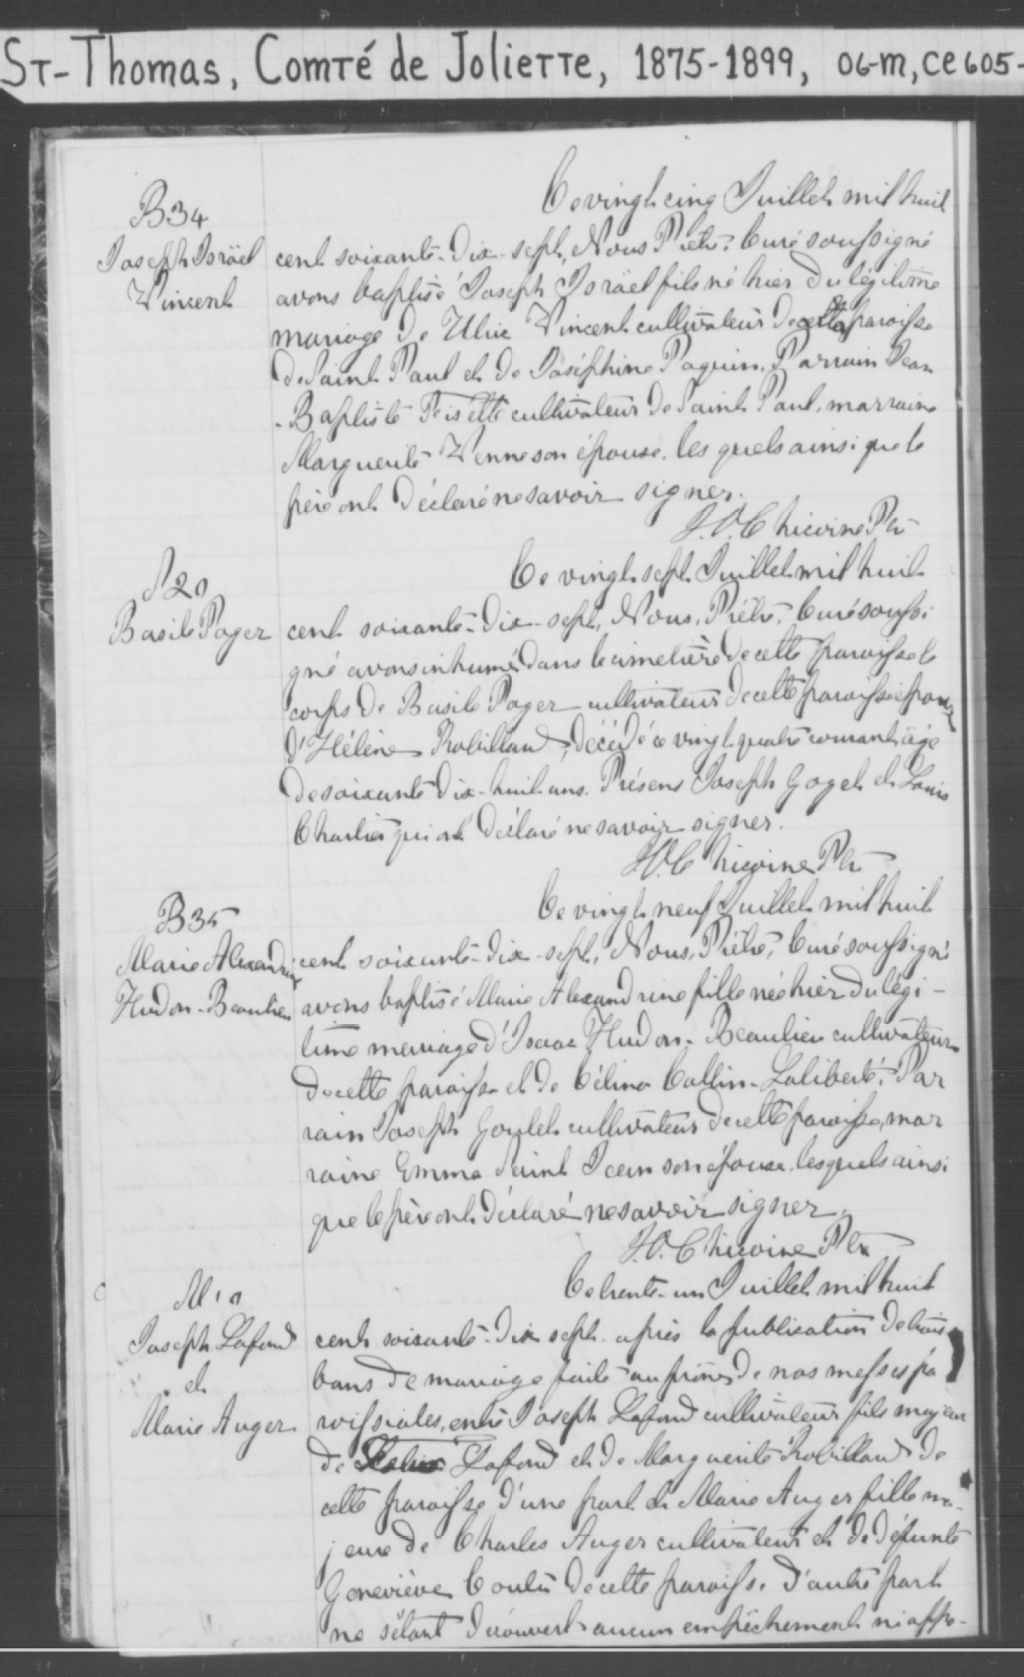 ST-Thomas, Comté de Joliette, 1875-1899, 06-M, CE605-
B34
Joseph Israël
Vincent
Ce vingt cinq Juillet mil huit
cent soixante-dix-sept, Nous Prêtre, Curé soussigné
avons baptisé Joseph Israël fils né hier du légitime
mariage de Ulric Vincent cultivateur de paroisse
de Saint Paul et de Joséphine Paquin. Parrain Jean
-Baptiste cultivateur de Saint Paul, marraine
Marguerite Venne son épouse, les quels ainsi que le
père ont déclaré ne savoir signer.
J.O. Chicoine Ptr
S20
Basile Pager
Ce vingt sept Juillet mil huit
cent soixante-dix-sept, Nous, Prêtre, Curé soussi
gné avons inhumé dans le cimetière de cette paroisse le
corps de Basile Pager cultivateur de cette paroisse époux
d'Hélène Robillard, décédé ce vingt quatre courant âgé
de soixante dix-huit ans. Présens Joseph Goyet et Louis
Charlier qui ont déclaré ne savoir signer.
J.O. Chicoine Ptr
B35
Marie Alexandrine
Hudon-Beaulieu
Ce vingt neuf Juillet mil huit
cent soixante-dix-sept, Nous, Prêtre, Curé soussigné
avons baptisé Marie Alexandrine fille née hier du légi-
time mariage d'Isaac Hudon-Beaulieu cultivateur
de cette paroisse et de Célina Collin-Laliberté. Par
rain Joseph Goulet cultivateur de cette paroisse, mar
raine Emma Saint Jean son épouse, lesquels ainsi
que le père ont déclaré ne savoir signer.
J.O. Chicoine Ptr
M10
Joseph Lafond
et
Marie Auger
Ce trente-un Juillet mil huit
cent soixante-dix sept après la publication de trois
bans de mariage faite au prône de nos messes pa
roissiales, entre Joseph Lafond cultivateur fils majeur
de Lafond et de Marguerite Robillard de
cette paroisse d'une part et Marie Auger fille ma-
jeure de Charles Auger cultivateur et de défunte
Geneviève Coutu de cette paroisse d'autre part
ne s'étant découvert aucun empêchement ni oppo-